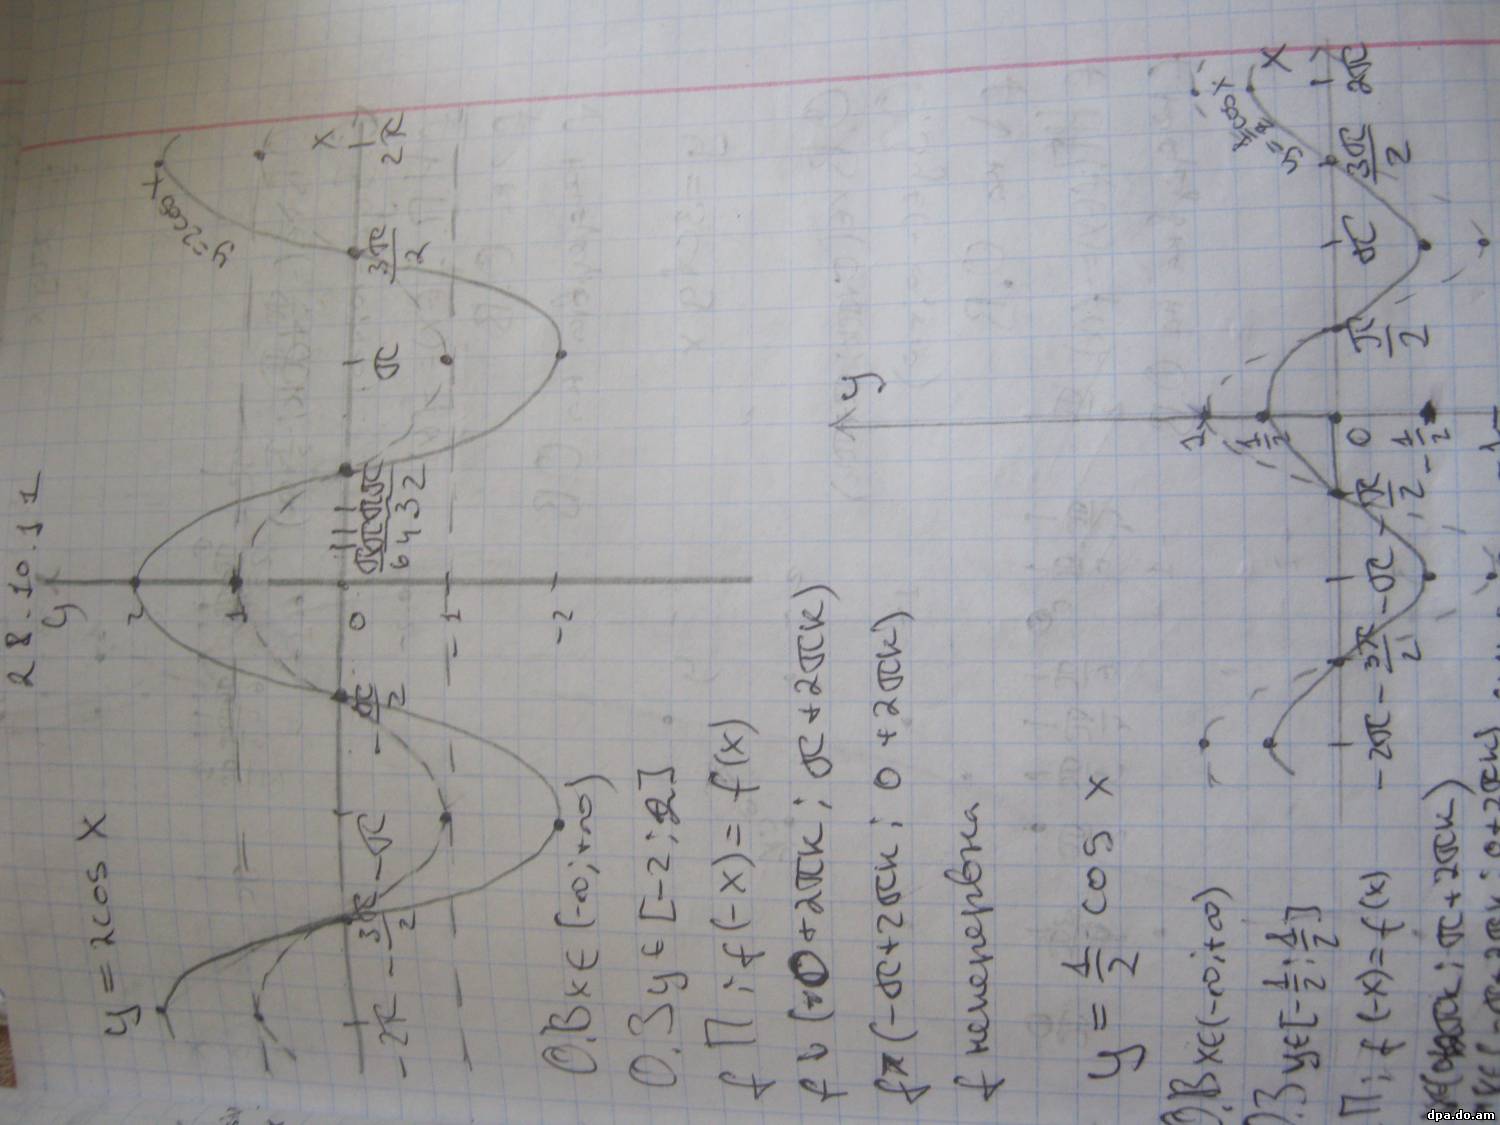 28.10.11
y = 2cos x
y
2
1
0
-1
-2
-2π -3π/2 -π -π/2 π/6 π/4 π/3 π/2 π 3π/2 2π
x
y=2cos x
О.В x∈(-∞;+∞)
О.З y∈[-2;2]
f П; f(-x)=f(x)
f ↓ (0+2πк; π+2πк)
f ↗ (-π+2πк; 0+2πк)
f неперервна
y = 1/2 cos x
y
1
1/2
0
-1/2
-1
-2π -3π/2 -π -π/2 π/2 π 3π/2 2π
x
y=1/2 cos x
О.В x∈(-∞;+∞)
О.З y∈[-1/2;1/2]
П; f(-x)=f(x)
2πк; π+2πк)
0+2πк)
dpa.do.am